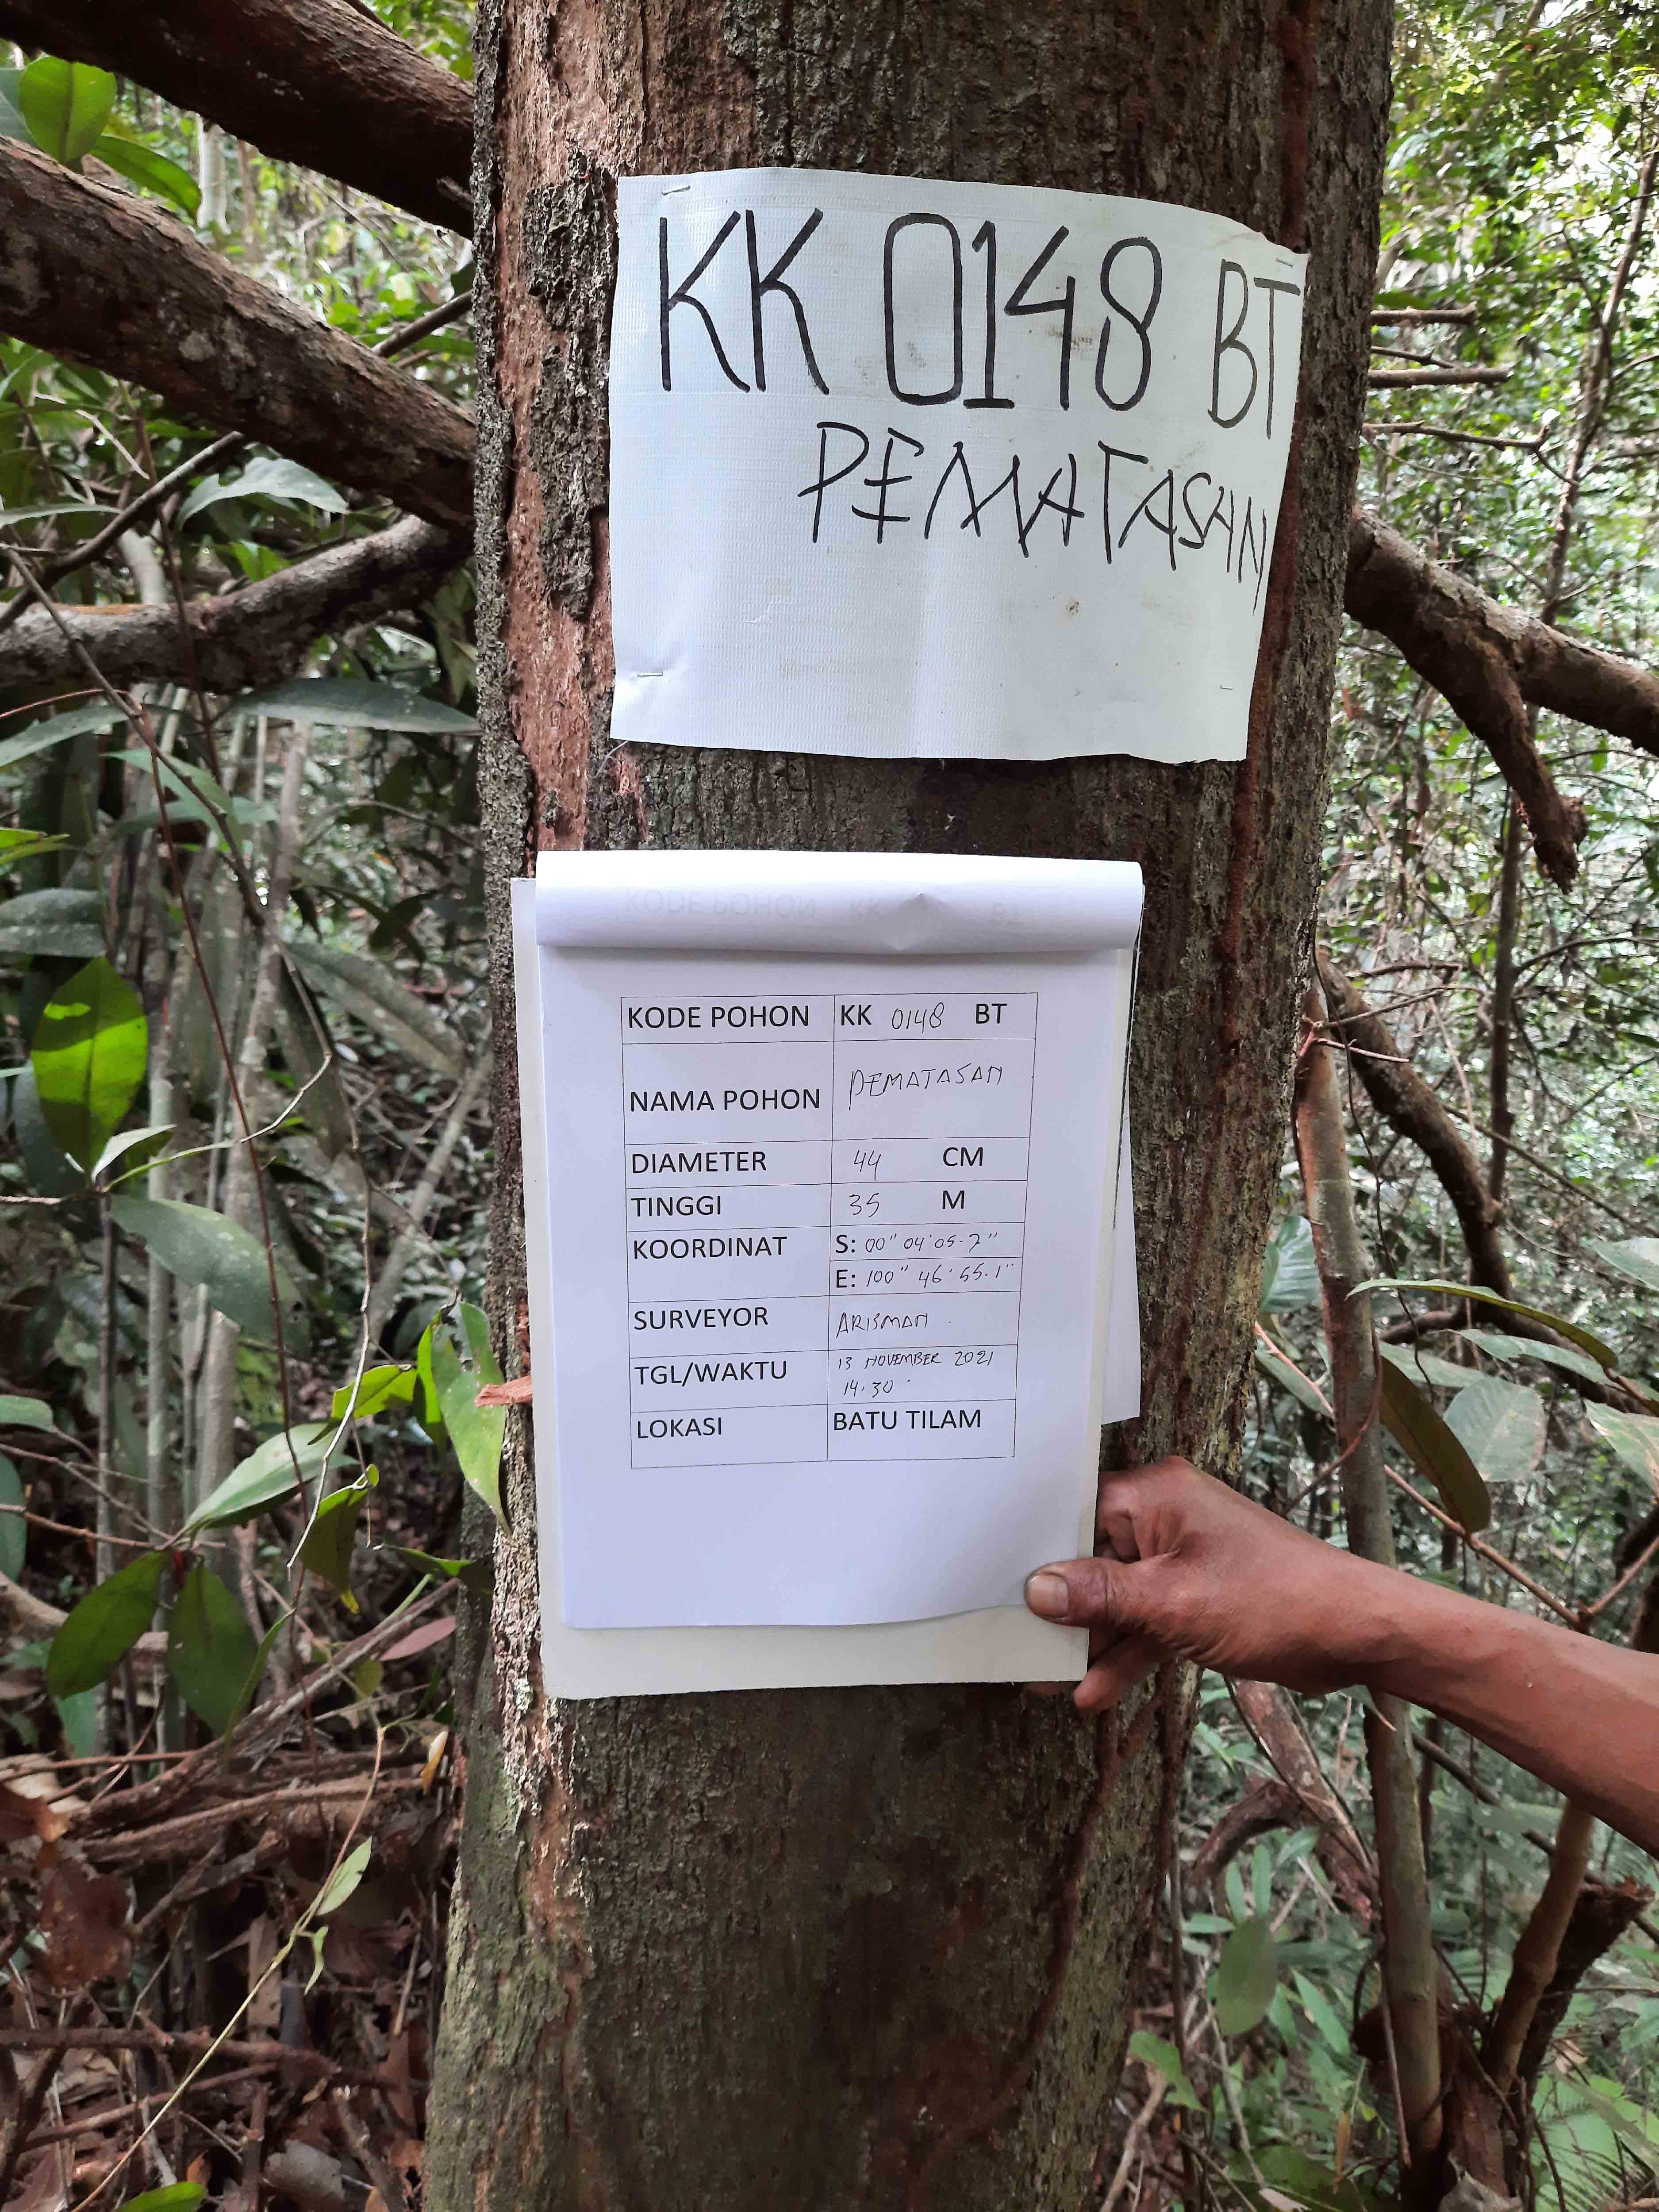 KK 0148 BT
PEMATASAN
KODE POHON KK 0148 BT
NAMA POHON PEMATASAN
DIAMETER 44 CM
TINGGI 35 M
KOORDINAT S: 00" 04' 05.7"
E: 100" 46' 55.1"
SURVEYOR ARISMAN
TGL/WAKTU 13 NOVEMBER 2021
14.30
LOKASI BATU TILAM